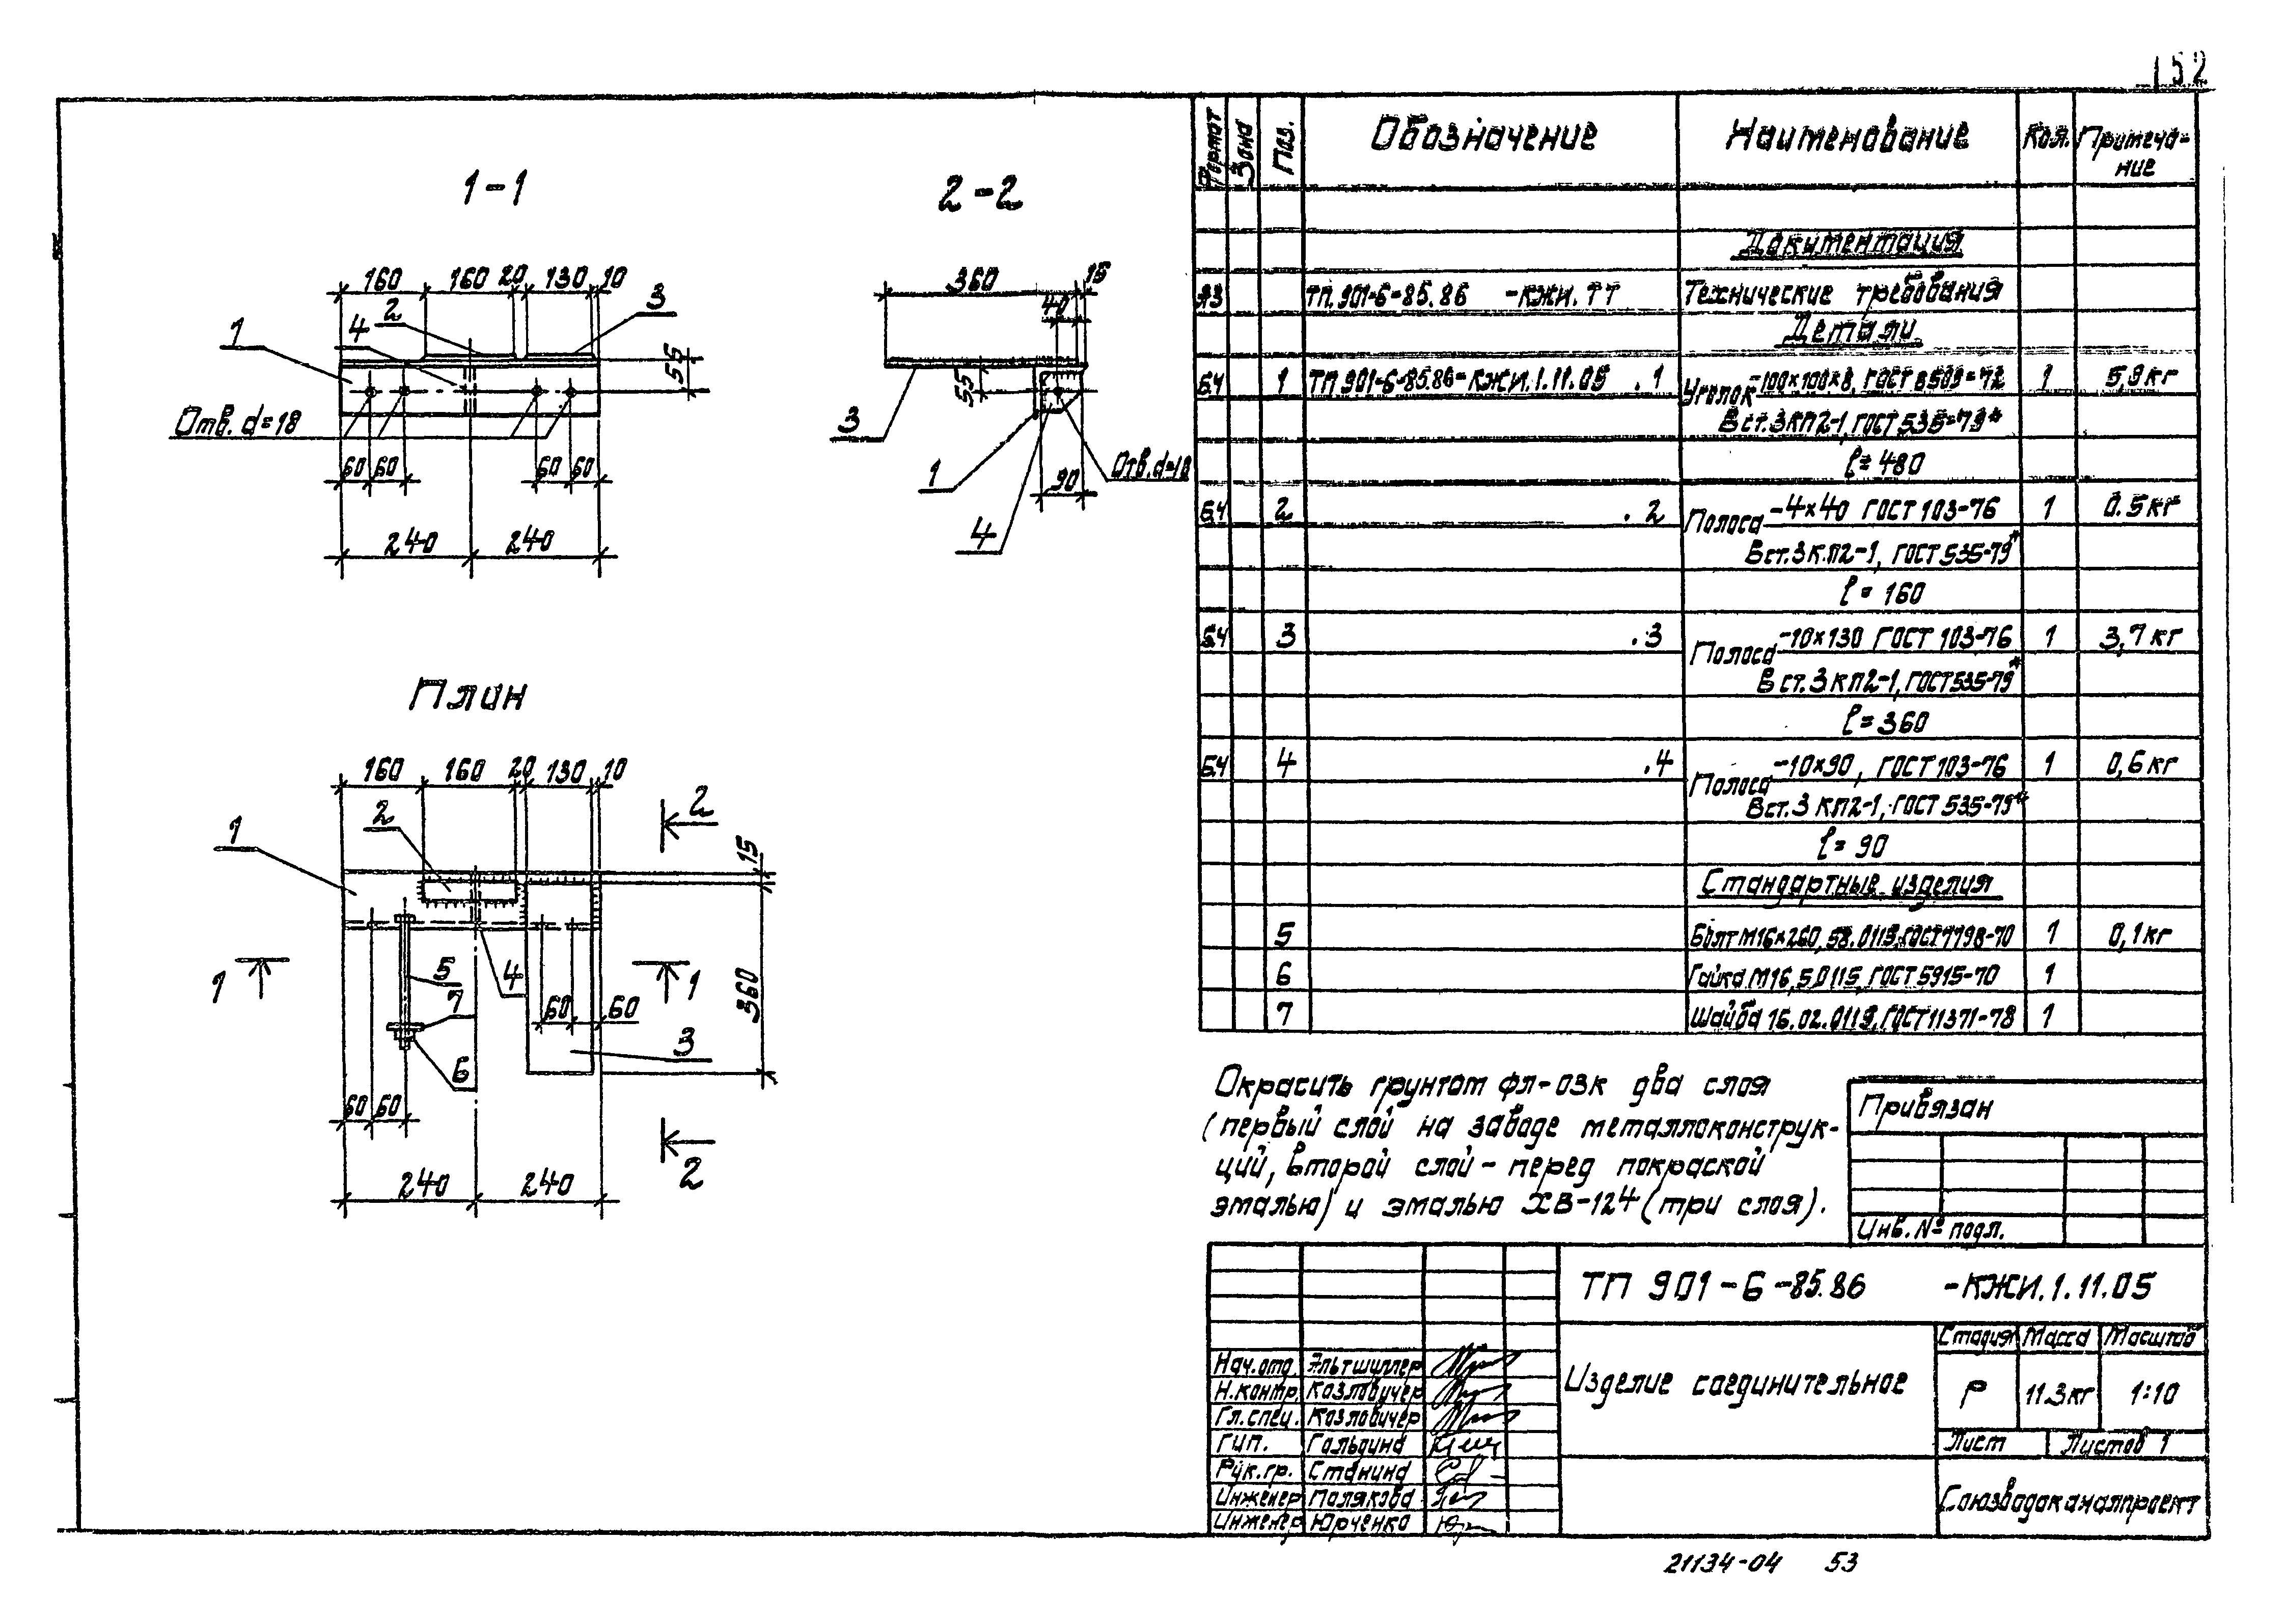 152
1-1
160 160 20 130 10
1
4
2
3
55
Отв. d=18
60 60 60 60
240 240
2-2
360 15
40
55
3
1
4
90
Отв. d=18
План
160 160 20 130 10
1
2
2
15
360
1
5
7
6
4
1
60 60
3
60 60
240 240
2
Формат Зона Поз. Обозначение Наименование Кол. Примеча-
ние
Документация
А3 ТП 901-6-85.86 -КЖИ.ТТ Технические требования
Детали
БЧ 1 ТП 901-6-85.86-КЖИ.1.11.05 .1 Уголок -100×100×8, ГОСТ 8509-72 1 5,9 кг
Вст.3КП2-1, ГОСТ 535-79*
l=480
БЧ 2 .2 Полоса -4×40 ГОСТ 103-76 1 0.5кг
Вст.3КП2-1, ГОСТ 535-79*
l=160
БЧ 3 .3 Полоса -10×130 ГОСТ 103-76 1 3,7кг
Вст.3КП2-1, ГОСТ 535-79*
l=360
БЧ 4 .4 Полоса -10×90, ГОСТ 103-76 1 0,6кг
Вст.3 КП2-1, ГОСТ 535-79*
l=90
Стандартные изделия
5 Болт М16×260, 58.0115, ГОСТ 7798-70 1 0,1кг
6 Гайка М16, 5.0115, ГОСТ 5915-70 1
7 Шайба 16.02.0115, ГОСТ 11371-78 1
Окрасить грунтом фл-03к два слоя
(первый слой на заводе металлоконструк-
ций, второй слой - перед покраской
эмалью) и эмалью ХВ-124 (три слоя).
Привязан
Инв. № подл.
ТП 901-6-85.86 -КЖИ.1.11.05
Изделие соединительное
Стадия Масса Масштаб
Р 11.3кг 1:10
Лист Листов 1
Союзводоканалпроект
Нач.отд. Эльтшуллер
Н.контр. Козловичер
Гл.спец. Козловичер
Гип. Гольдина
Рук.гр. Станина
Инженер Полякова
Инженер Юрченко
21134-04 53